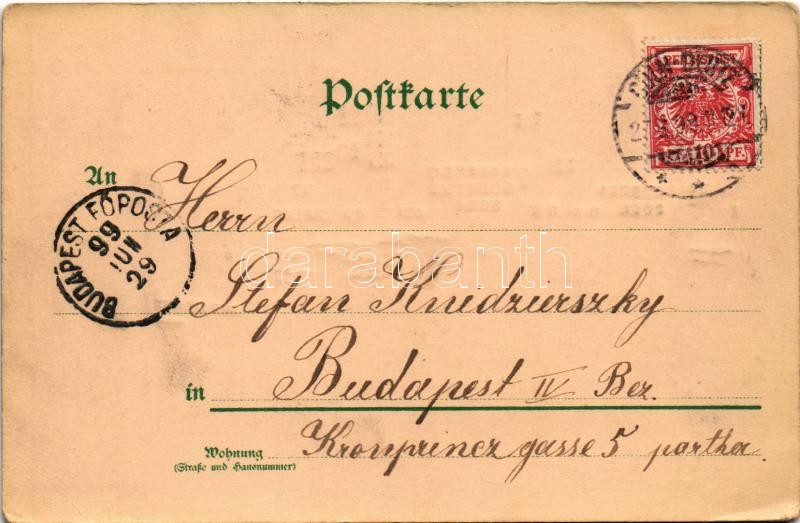 Postkarte
REICHSPOST
10 PF.
An Herrn
BUDAPEST FŐPOSTA
99
JUN
29
darabanth
Stefan Kniedzierszky
in Budapest IV Bez.
Wohnung
(Straße und Hausnummer)
Kronprincz gasse 5 partha